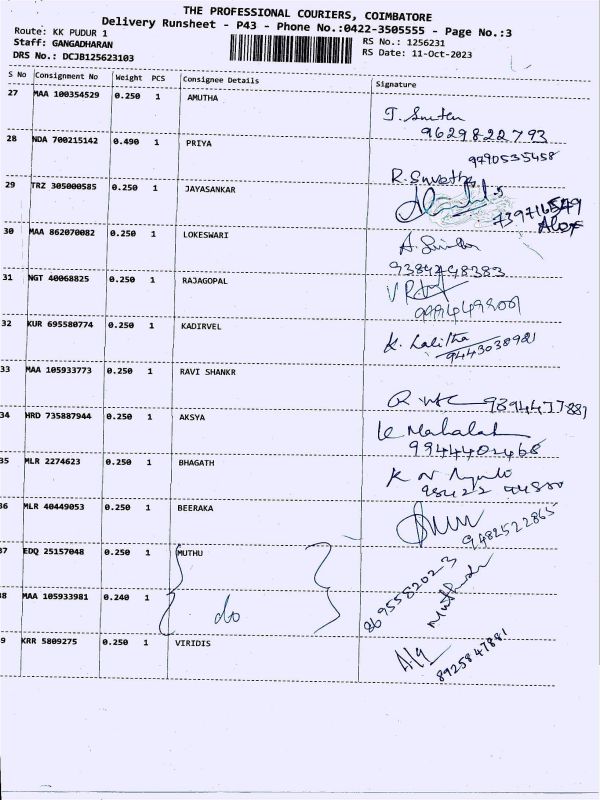 THE PROFESSIONAL COURIERS, COIMBATORE
Delivery Runsheet - P43 - Phone No.:0422-3505555 - Page No.:3
Route: KK PUDUR 1
Staff: GANGADHARAN
RS No.: 1256231
DRS No.: DCJB125623103
RS Date: 11-Oct-2023
S No Consignment No Weight PCS Consignee Details Signature
27 MAA 100354529 0.250 1 AMUTHA
9629822793
28 NDA 700215142 0.490 1 PRIYA
9990535458
29 TRZ 305000585 0.250 1 JAYASANKAR
30 MAA 862070082 0.250 1 LOKESWARI
9384748383
31 NGT 40068825 0.250 1 RAJAGOPAL
32 KUR 695580774 0.250 1 KADIRVEL
K. Lalitha
9443038921
33 MAA 105933773 0.250 1 RAVI SHANKR
34 HRD 735887944 0.250 1 AKSYA
9944402468
35 MLR 2274623 0.250 1 BHAGATH
36 MLR 40449053 0.250 1 BEERAKA
9482522865
37 EDQ 25157048 0.250 1 MUTHU
8695582023
38 MAA 105933981 0.240 1 do
39 KRR 5809275 0.250 1 VIRIDIS
8925847881